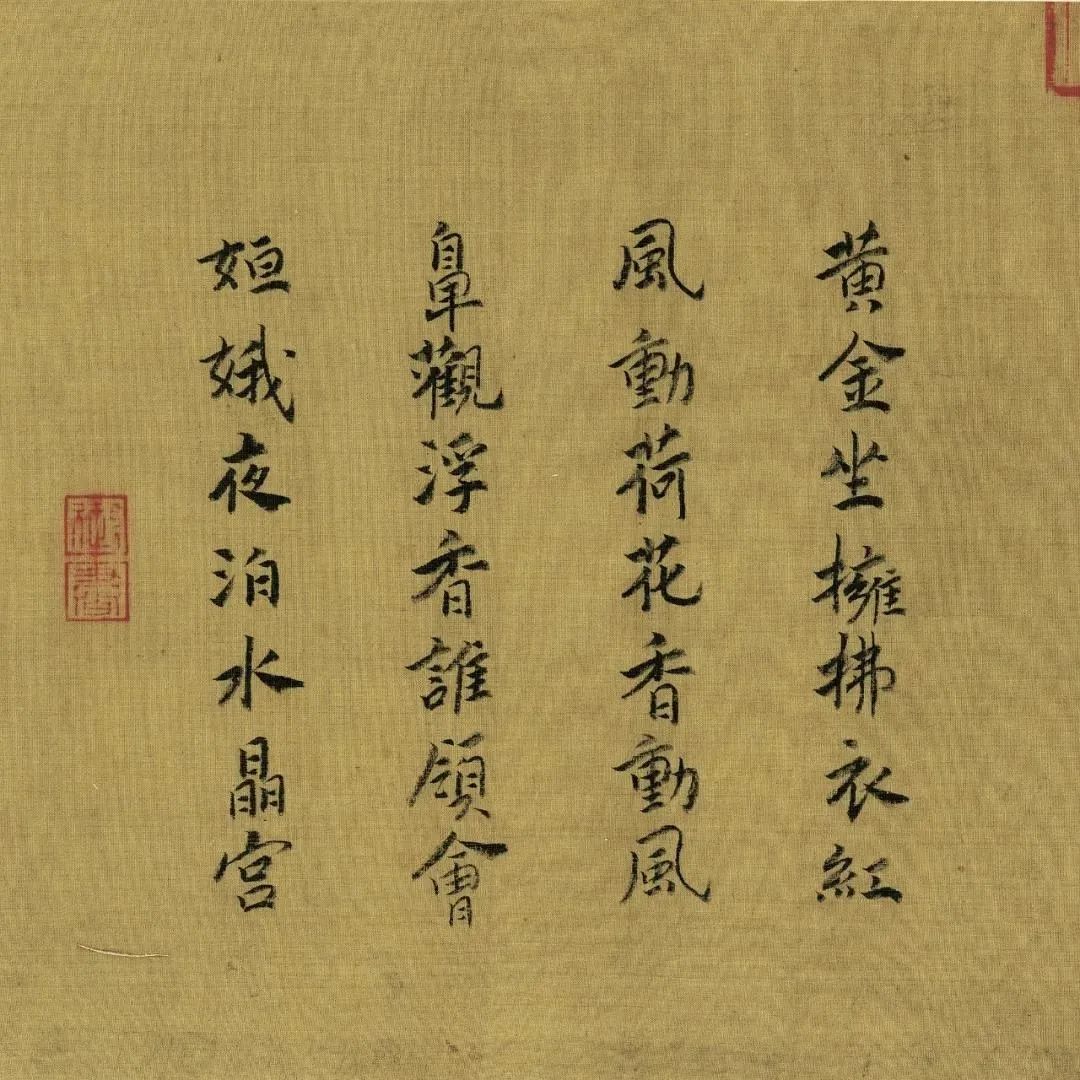 黄金坐擁拂衣紅
風動荷花香動風
鼻觀浮香誰領會
姮娥夜泊水晶宮